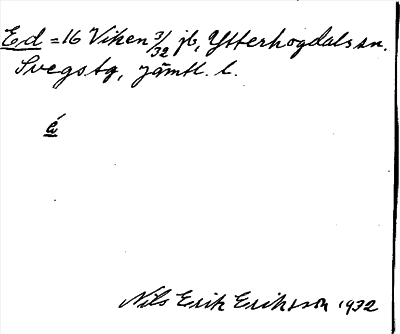 Ed = 16 Viken 3/32 jb, Ytterhogdals sn.
Svegs tg, Jämtl. l.
é
Nils Erik Eriksson 1932